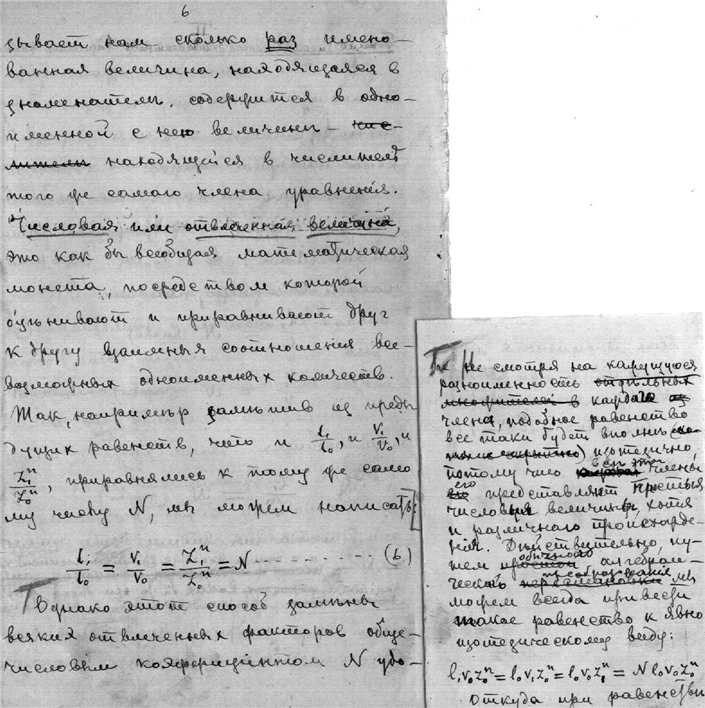 6
зываетъ намъ сколько разъ имено-
ванная величина, находящаяся въ
знаменателѣ, содержится въ одно-
именной с нею величинѣ - чис-
лителѣ находящейся в числителѣ
того же самаго члена уравненія.
Числовая или отвлеченная величина,
это какъ бы всеобщая математическая
монета, посредствомъ которой
оцѣниваютъ и приравниваютъ другъ
къ другу взаимныя соотношенія все-
возможныхъ одноименныхъ количествъ.
Такъ, напримѣръ замѣтивъ из преды
дущихъ равенствъ, что и l₁/l₀, и V₁/V₀, и
Z₁ⁿ/Z₀ⁿ, приравнялись к тому же само
му числу N, мы можемъ написать
l₁/l₀ = V₁/V₀ = Z₁ⁿ/Z₀ⁿ = N ............ (6)
Однако этотъ способъ замѣны
всякихъ отвлеченныхъ факторовъ обще-
числовымъ коэффиціентомъ N удо-
Не смотря на кажущуюся
разноименность отдѣльныхъ
множителей в каждаго из
члена, подобное равенство
все таки будетъ вполнѣ
изотедично,
потому что всѣ эти члены
его представляютъ простыя
числовыя величины, хотя
и различнаго происхожде-
нія. Дѣйствительно, пу-
темъ простой обычнаго алгебраи-
ческаго перестановки преобразованія мы
можемъ всегда привести
такое равенство к явно
изотедическому виду:
l₁V₀Z₀ⁿ = l₀V₁Z₀ⁿ = l₀V₀Z₁ⁿ = N l₀V₀Z₀ⁿ
Откуда при равенствѣ